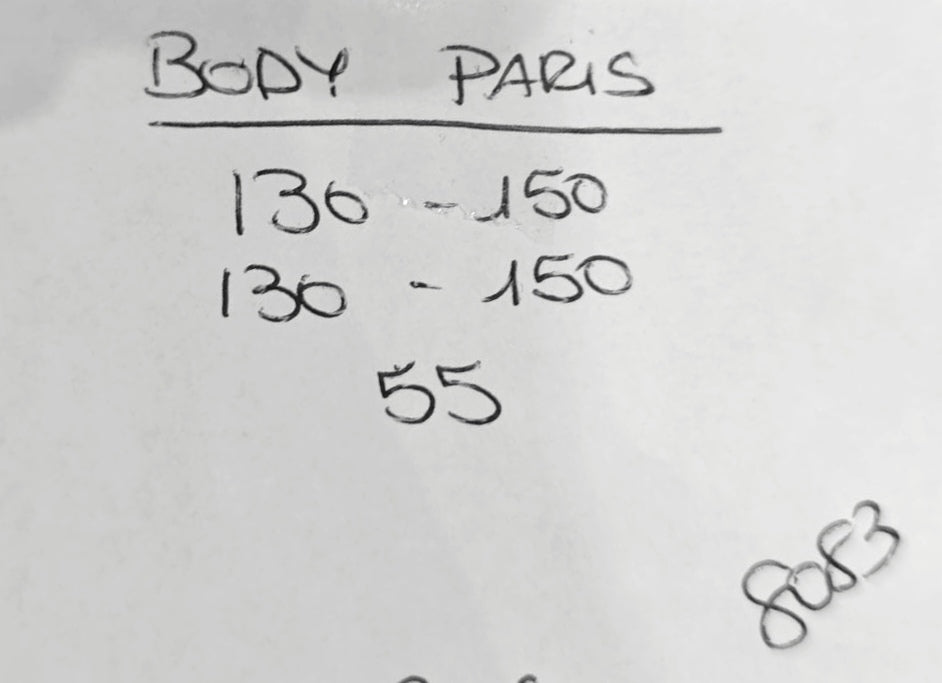 BODY PARIS
130 - 150
130 - 150
55
8053